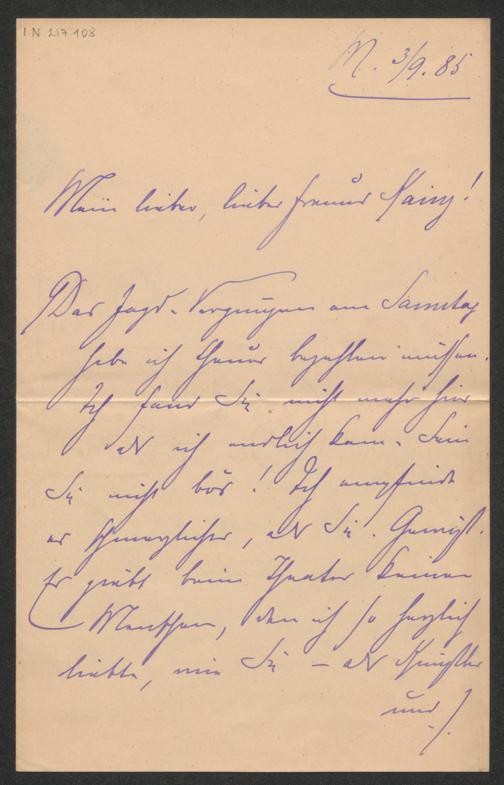 I.N. 217.108
M. 3/9. 85
Mein lieber, lieber Freund Kainz!
Das Jagd-Vergnügen am Samstag
habe ich theuer bezahlen müssen.
Ich fand Sie nicht mehr hier
als ich endlich kam. Sein
Sie nicht bös! Ich empfinde
es schmerzlicher, als Sie. Gewiß.
Es giebt beim Theater keinen
Menschen, den ich so herzlich
liebte, wie Sie – als Künstler
und